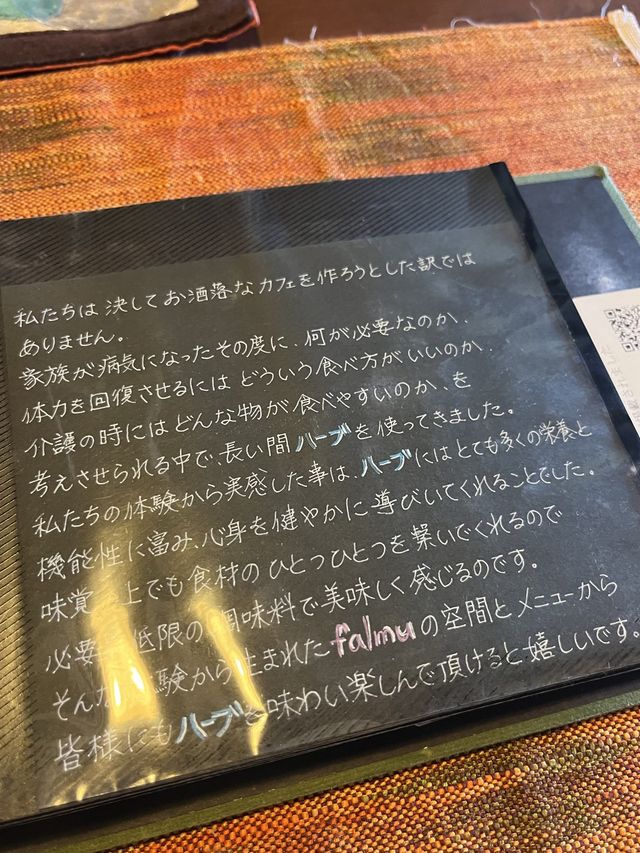 私たちは 決して お洒落な カフェを作ろうとした訳では
ありません。
家族が病気になったその度に、何が必要なのか、
体力を回復させるには どういう食べ方がいいのか、
介護の時にはどんな物が食べやすいのか、を
考えさせられる中で、長い間ハーブを使ってきました。
私たちの体験から実感した事は、ハーブにはとても多くの栄養と
機能性に富み、心身を健やかに導びいてくれることでした。
味覚 上でも食材のひとつひとつを繋いでくれるので
必要 低限の 調味料で美味しく感じるのです。
そんな 験から生まれた falmuの空間とメニューから
皆様にもハーブを味わい楽しんで頂けると嬉しいです。